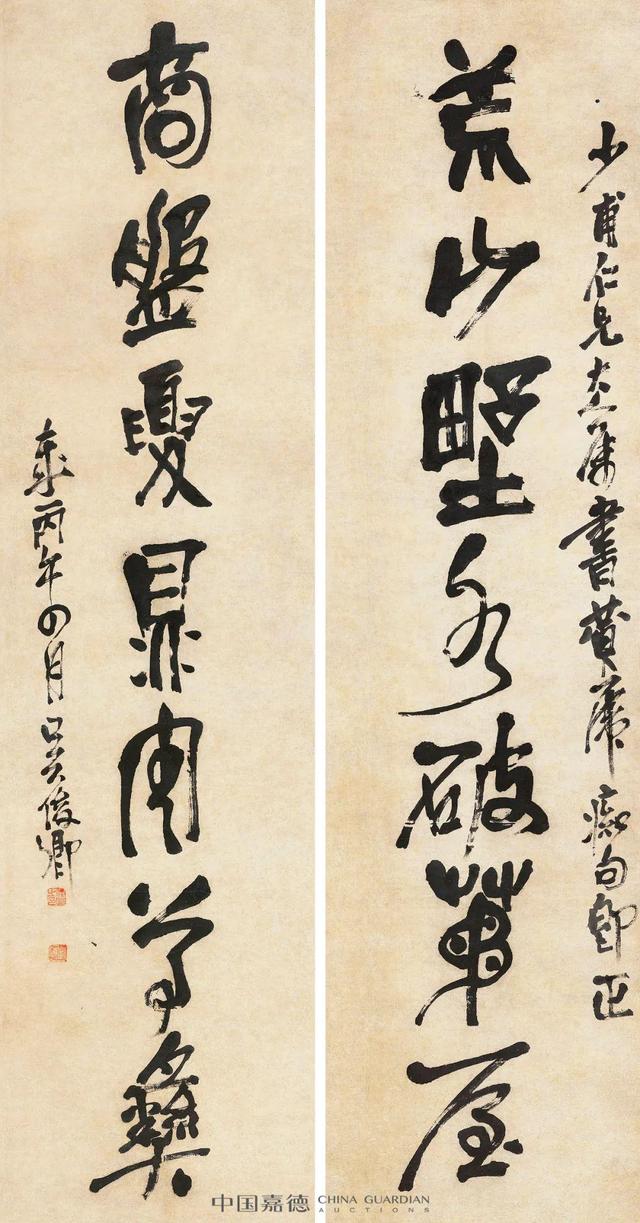 少甫仁兄大人屬書黃虎癡句即正
荒山野水破茅屋
商盤夏鼎周尊彝
歲丙午四月吳俊卿
中国嘉德 CHINA GUARDIAN AUCTIONS